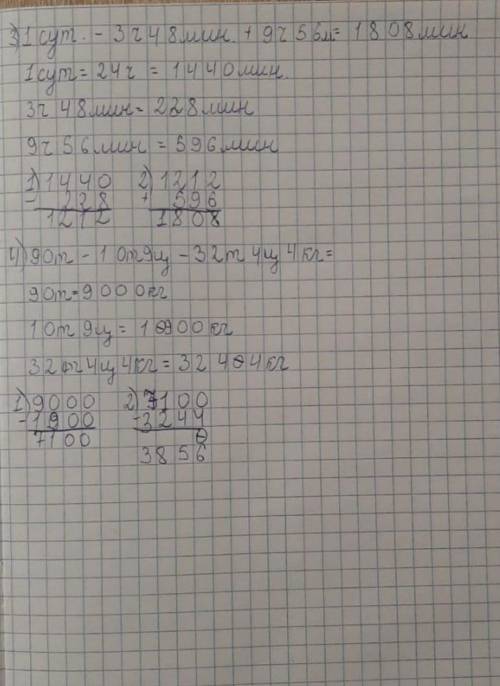 3) 1 сут. - 3ч48мин. + 9ч56м= 1808мин
1сут= 24ч = 1440мин.
3ч 48мин= 228мин
9ч 56мин = 596мин
1) 1440 2) 1212
- 228 + 596
1212 1808
4) 90т - 10т9ц - 32т 4ц 4кг=
90т=9000кг
10т 9ц = 10900кг
32т4ц4кг=32404кг
1) 9000 2) 7100
-1900 -3244
7100
3856